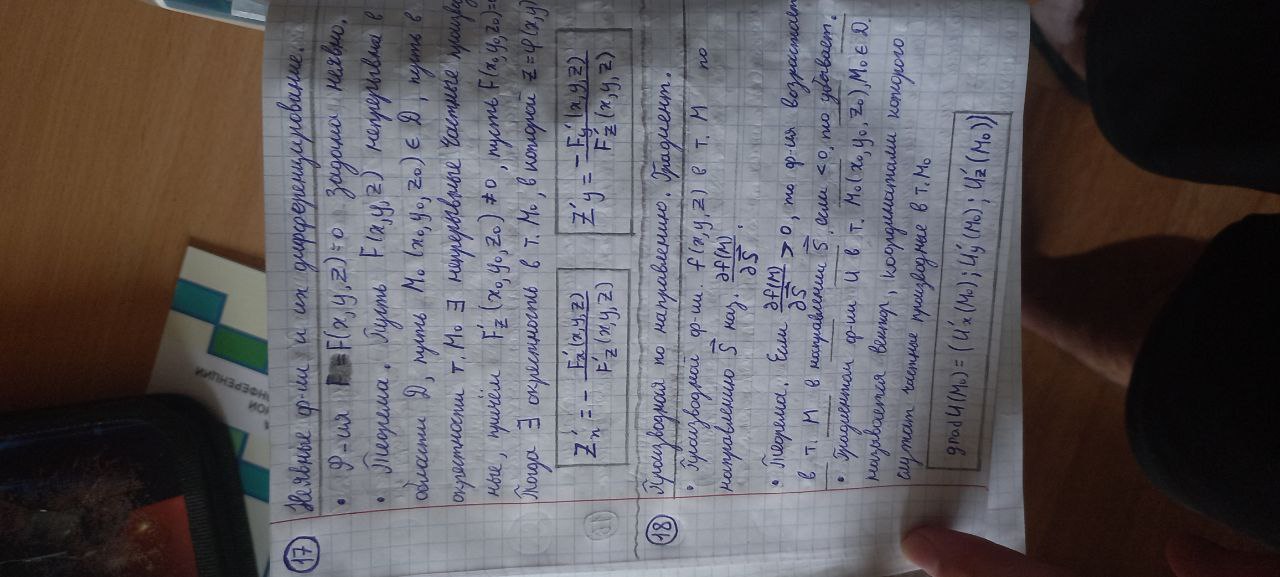 17 Неявные ф-ии и их дифференцирование.
• Ф-ия F(x,y,z)=0 задана неявно.
• Теорема. Пусть F(x,y,z) непрерывна в
области D, пусть M₀(x₀,y₀,z₀) ∈ D, пусть в
окрестности т. M₀ ∃ непрерывные частные произвед
ные, причём F'z(x₀,y₀,z₀) ≠ 0, пусть F(x₀,y₀,z₀)=0
Тогда ∃ окрестность в т. M₀ в которой z=φ(x,y)
Z'x = - F'x(x,y,z) / F'z(x,y,z) Z'y = - F'y(x,y,z) / F'z(x,y,z)
18 Производной по направлению. Градиент.
• Производной ф-ии f(x,y,z) в т. M по
направлению S⃗ наз. ∂f(M)/∂S⃗.
• Теорема. Если ∂f(M)/∂S⃗ > 0, то ф-ия возрастает
в т. M в направлении S⃗, если <0, то убывает.
• Градиентом ф-ии U в т. M₀(x₀,y₀,z₀), M₀ ∈ D
называется вектор, координатами которого
служат частные производные в т. M₀
grad U(M₀) = (U'x(M₀); U'y(M₀); U'z(M₀))
НФЕРЕНЦИИ